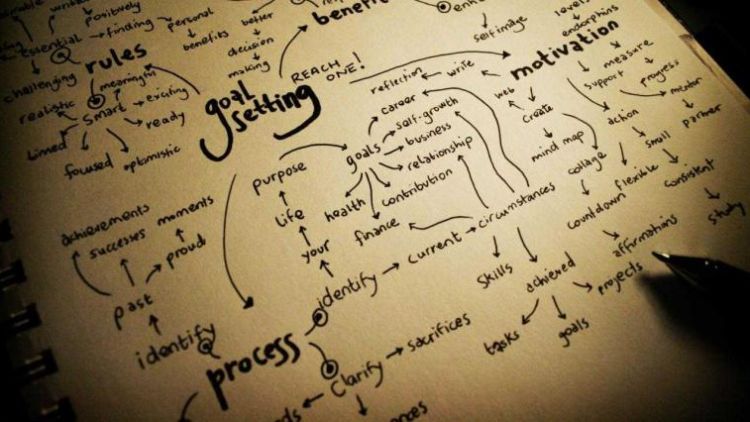 positively
essential
finding
personal
benefits
better
decision
making
benefit
self image
levels
endorphins
rules
challenging
meaningful
realistic
smart
exciting
ready
timed
focused
optimistic
goal
setting
REACH
ONE!
motivation
reflection
write
web
create
mind map
collage
support
measure
progress
mentor
partner
action
small
flexible
consistent
study
countdown
affirmations
projects
goals
career
self-growth
business
relationship
contribution
health
finance
purpose
life
your
identify
current
circumstances
skills
achieved
tasks
goals
achievements
successes
moments
proud
past
identify
process
Clarify
sacrifices